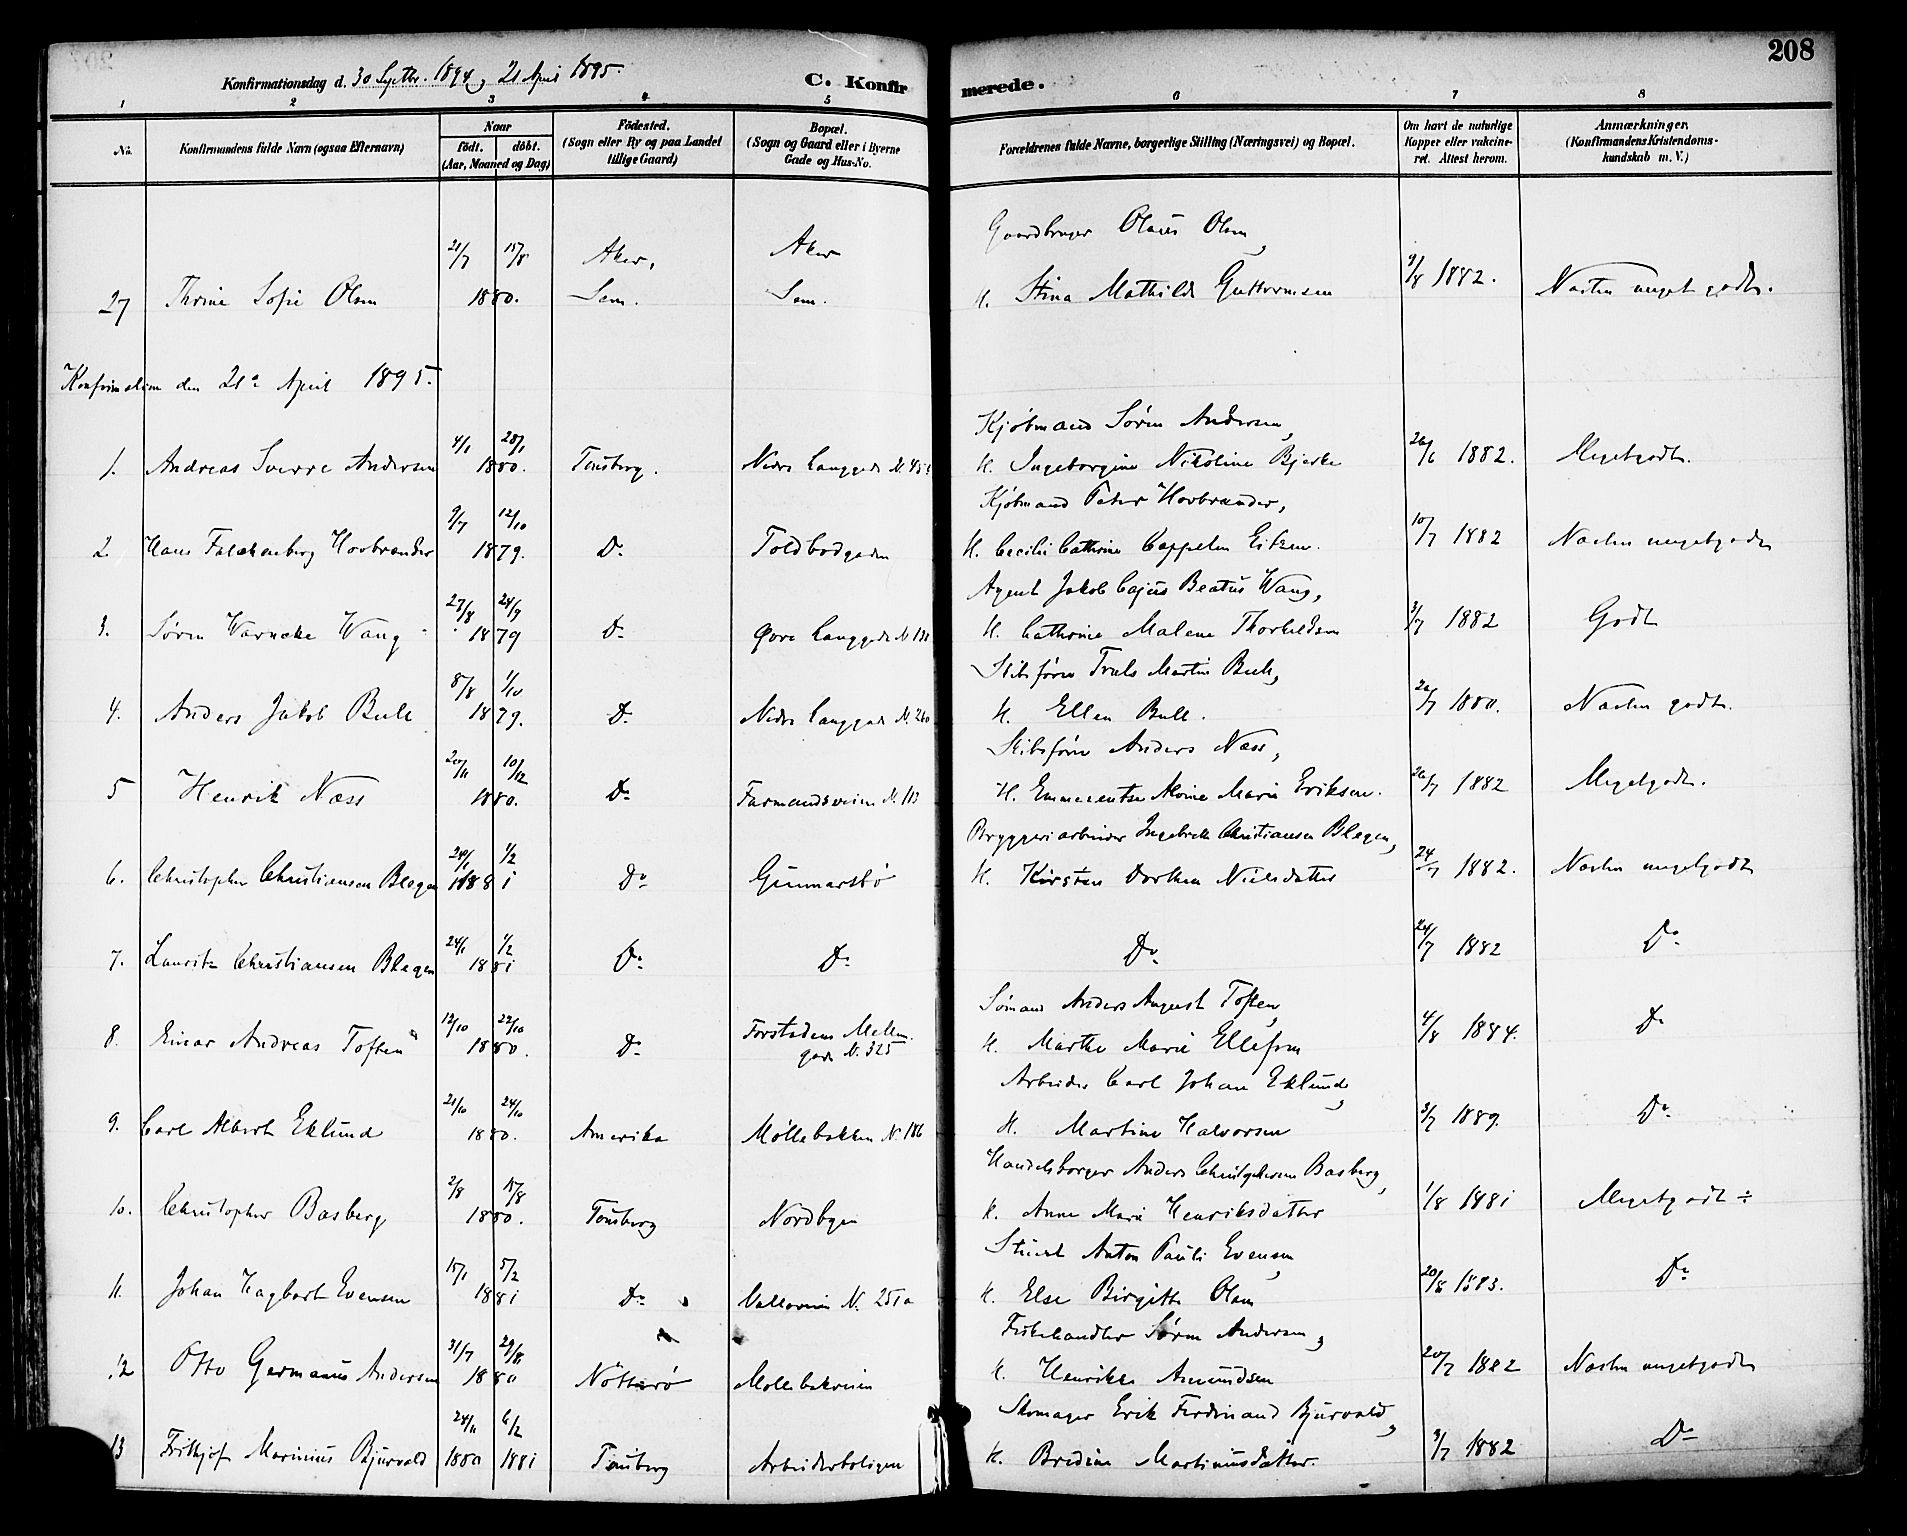 208
Konfirmationsdag d. 30 Septbr. 1894, 21 April 1895.
C. Konfirmerede.
1 2 3 4 5 6 7 8
No.
Konfirmandens fulde Navn (ogsaa Efternavn)
Naar
født. døbt.
(Aar, Moaned og Dag)
Födested.
(Sogn eller By og paa Landet
tillige Gaard)
Bopæl.
(Sogn og Gaard eller i Byerne
Gade og Hus-No.
Forældrenes fulde Navne, borgerlige Stilling (Næringsvei) og Bopæl.
Om havt de naturlige
Kopper eller vakcine-
ret. Attest herom.
Anmærkninger,
(Konfirmandens Kristendoms-
kundskab m. V.)
Gaardbruger Olaus Olsen,
21/7 15/8 Aker, Aker
27 Thrine Sofie Olsen 1880. Sem. Sem. H. Stina Mathilde Guttormsen 9/8 1882. Næsten meget godt.
Konfirmation den 21de April 1895.
Kjøbmand Søren Andersen,
1. Andreas Sverre Andersen 4/1 28/1 1880. Tønsberg. Nedre Langgade H. Ingeborgine Nikoline Bjerke 26/6 1882. Megetgodt.
Kjøbmand Peter Hovbrender,
2. Hans Falchenberg Hovbrender 9/7 12/10 1879. Do Toldbodgaden H. Cecilie Cathrine Cappelen Eitzen. 10/7 1882 Næsten megetgodt
Agent Jakob Cajus Beatus Wang,
3. Søren Warncke Wang 27/8 24/9 1879 Do Øvre Langgade H. Cathrine Malene Thorkildsen 3/7 1882 Godt
Skibsfører Truls Martin Bull,
4. Anders Jakob Bull 8/8 1/10 1879. Do Nedre Langgade N. 260 H. Ellen Bull. 1880. Næsten godt.
Skibsfører Anders Næss,
5 Henrik Næss 20/11 10/12 1880. Do Farmandsveien N. 113 H. Emmerentse Alvine Marie Eriksen. 26/7 1882 Megetgodt.
Bryggeriarbeider Ingebret Christiansen Blegen,
6. Christopher Christiansen Blegen 24/1 1/2 1881 Do Gunnarsbø H. Kirsten Dorthea Nielsdatter 24/7 1882. Næsten megetgodt
7. Lauritz Christiansen Blegen 24/1 1/2 1881 Do Do Do 24/7 1882 Do
Sømand Anders August Toften,
8. Einar Andreas Toften 12/10 22/10 1880. Do Forstaden Mellem-
gade N. 325 H. Marthe Marie Ellefsen 4/8 1884. Do
Arbeider Carl Johan Eklund,
9. Carl Albert Eklund 21/10 24/10 1880. Amerika Møllebakken N. 186 H. Martine Halvorsen 3/7 1889. Do
Handelsborger Anders Christophersen Basberg,
10. Christopher Basberg 2/8 15/8 1880. Tønsberg Nordbyen H. Anne Marie Henriksdatter 1/8 1881 Megetgodt ÷
Stuert Anton Pauli Evensen,
11. Johan Hagbart Evensen 15/1 5/2 1881 Do Valløveien N. 251a H. Else Birgitte Olsen 20/8 1883. Do
Fiskehandler Søren Andersen,
12 Otto Germanus Andersen 31/7 29/8 1880 Nötterö Møllebakveien H. Henrikke Amundsen 20/7 1882 Næsten megetgodt
Skomager Erik Ferdinand Bjurvald,
13 Frithjof Marinius Bjurvald 24/11 1880 6/2 1881 Tønsberg Arbeiderboligen H. Bredine Martinusdatter. 3/7 1882 Do